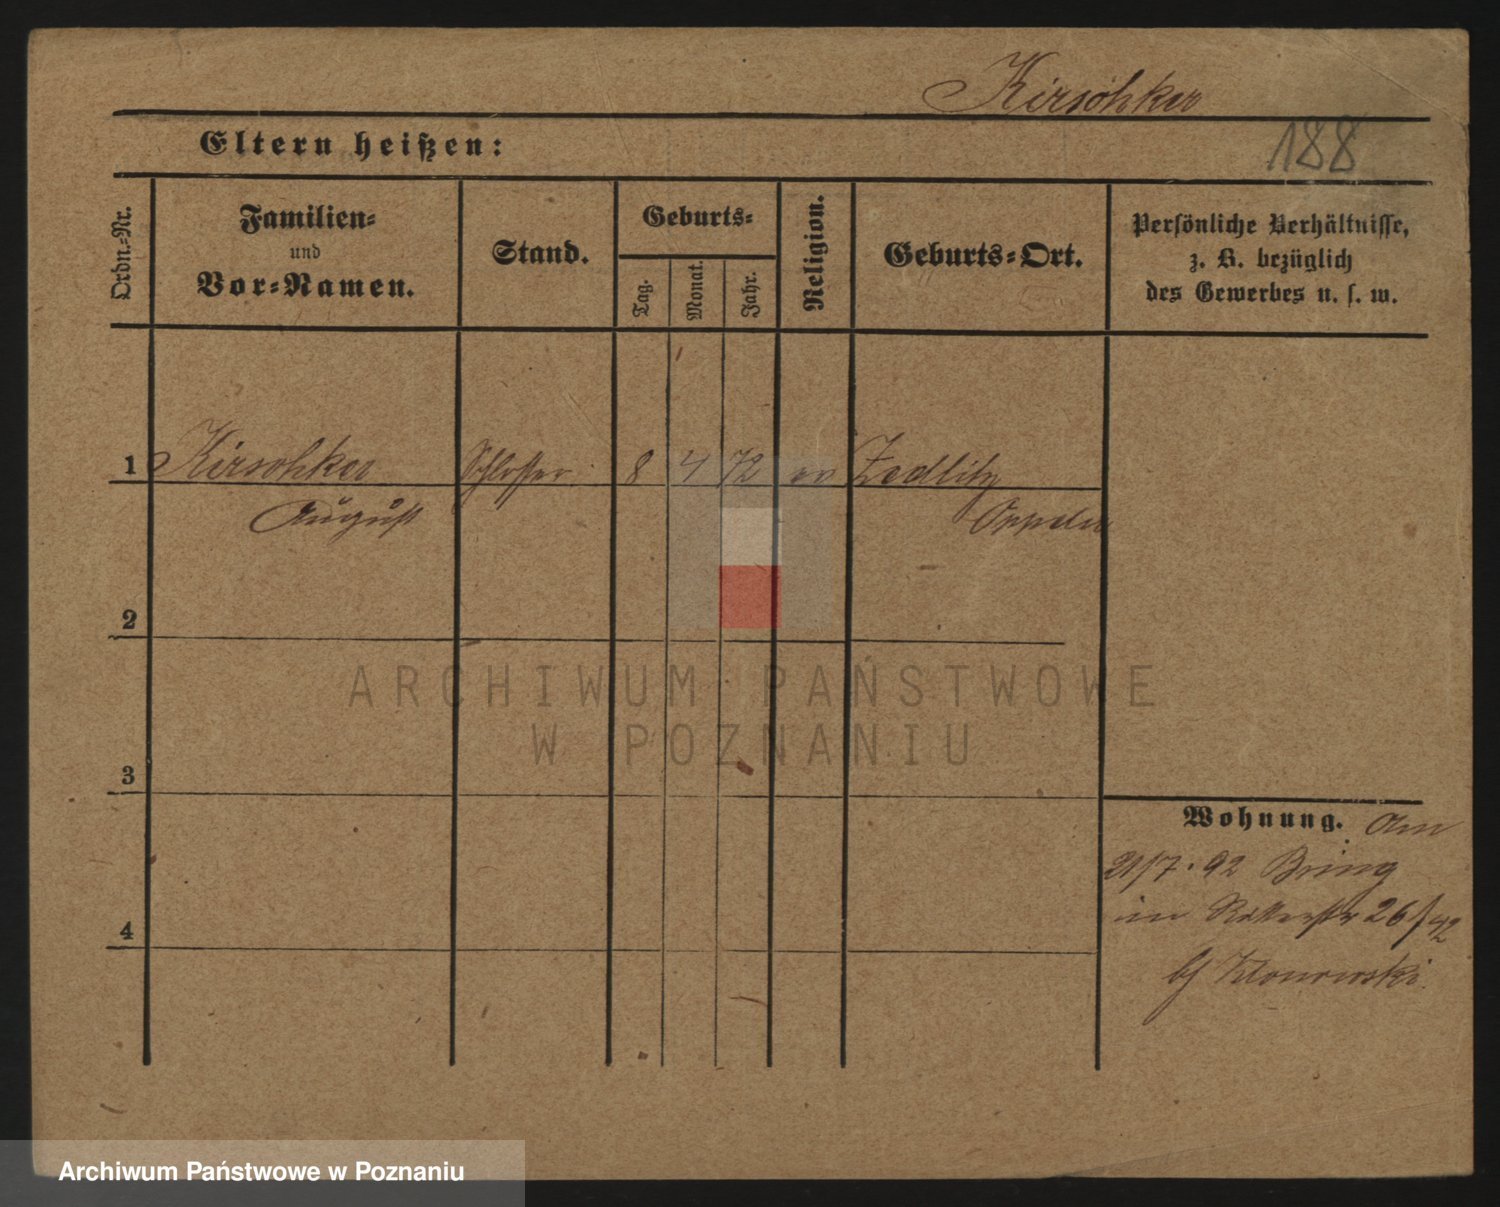 Kirschker
188
Eltern heißen:
Ordn.-Nr.
Familien-
und
Vor-Namen.
Stand.
Geburts-
Tag.
Monat.
Jahr.
Religion.
Geburts-Ort.
Persönliche Verhältnisse,
z. B. bezüglich
des Gewerbes u. s. w.
1 Kirschker Schlosser 8 4 72 ev Zedlitz
August Oppeln
2
ARCHIWUM PAŃSTWOWE
W POZNANIU
3
Wohnung. Am
21/7. 92
in Ritterstr 26/42
4
Klonowski
Archiwum Państwowe w Poznaniu